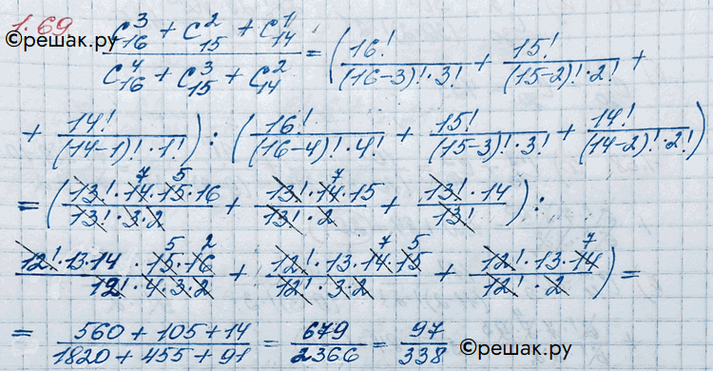 1.69
©решак.ру
(C_{16}^3 + C_{15}^2 + C_{14}^1)/(C_{16}^4 + C_{15}^3 + C_{14}^2) = (16!/((16-3)!·3!) + 15!/((15-2)!·2!) +
+ 14!/((14-1)!·1!)) : (16!/((16-4)!·4!) + 15!/((15-3)!·3!) + 14!/((14-2)!·2!))
= (13!·14 7·15 5·16/(13!·3·2) + 13!·14 7·15/(13!·2) + 13!·14/13!) :
12!·13·14·15 5·16 2/(12!·4·3·2) + 12!·13·14 7·15 5/(12!·3·2) + 12!·13·14 7/(12!·2)) =
= (560 + 105 + 14)/(1820 + 455 + 91) = 679/2366 = 97/338
©решак.ру